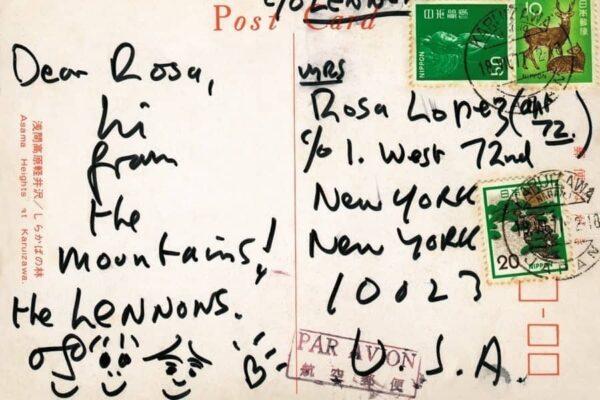 Post Card
C/O LENNON
Dear Rosa,
hi
from
the
mountains!
the LENNONS.
浅間高原軽井沢/しらかばの林
Asama Heights at Karuizawa.
MRS
Rosa Lopez (apt
72.)
c/o 1. West 72nd
New YORK
New YORK
10023
U.S.A.
PAR AVION
航空郵便
日本郵便
50
NIPPON
10
NIPPON
KARUIZAWA
日本郵便
20
NIPPON
KARUIZAWA
JAPAN